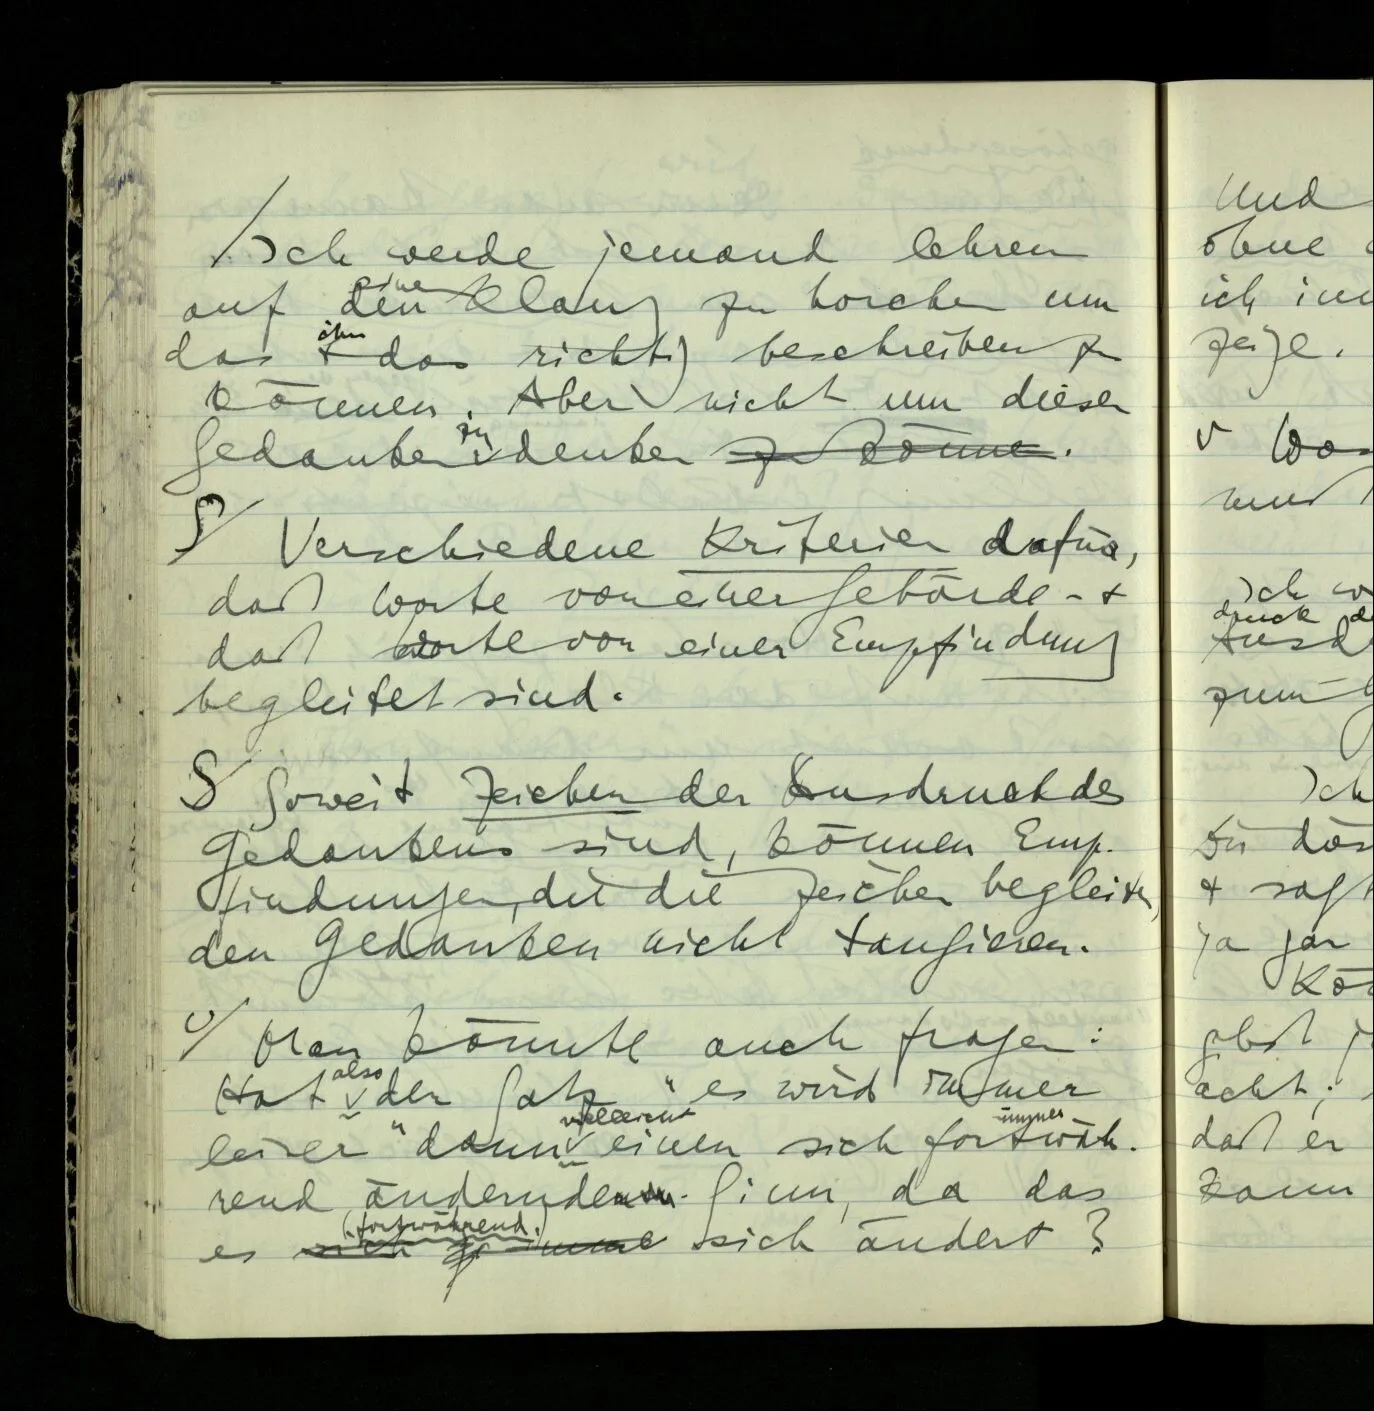 / Ich werde jemand lehren
einen
auf den Klang zu horchen um
ihn
das & das richtig beschreiben zu
können. Aber nicht um diesen
zu
Gedanken denken zu können.
S/ Verschiedene Kriterien dafür,
daß Worte von einer Gebärde - &
daß Worte von einer Empfindung
begleitet sind.
S/ Soweit Zeichen der Ausdruck des
Gedankens sind, können Emp-
findungen, die die Zeichen begleiten,
den Gedanken nicht tangieren.
Man könnte auch fragen:
also
Hat der Satz "es wird immer
vielleicht immer
leiser" dann einen sich fortwäh-
rend ändernden Sinn, da das
(fortwährend)
es sich ja immer sich ändert?
Und
ohne
zeige.
Ich
druck
zum
Ich
& sagt
ja gar
acht;
daß er
kann